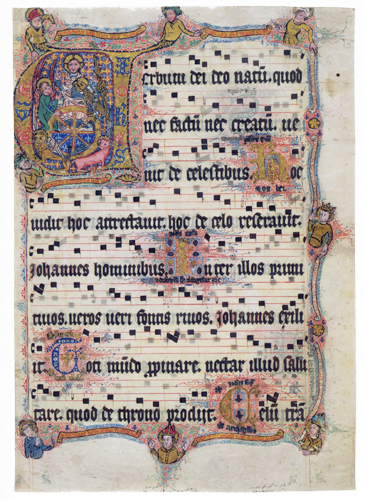 erbum dei deo natū. quod
nec factū nec creatū. ue
nit de celestibus. Hoc
uidit hoc attrectauit. hoc de celo reserauit.
Johannes hominibus. Inter illos primi
tiuos. ueros ueri fontis riuos. Johannes exili
it Toti mūdo ꝓpinare. nectar illud salu
tare. quod de throno prodijt. Celū trā